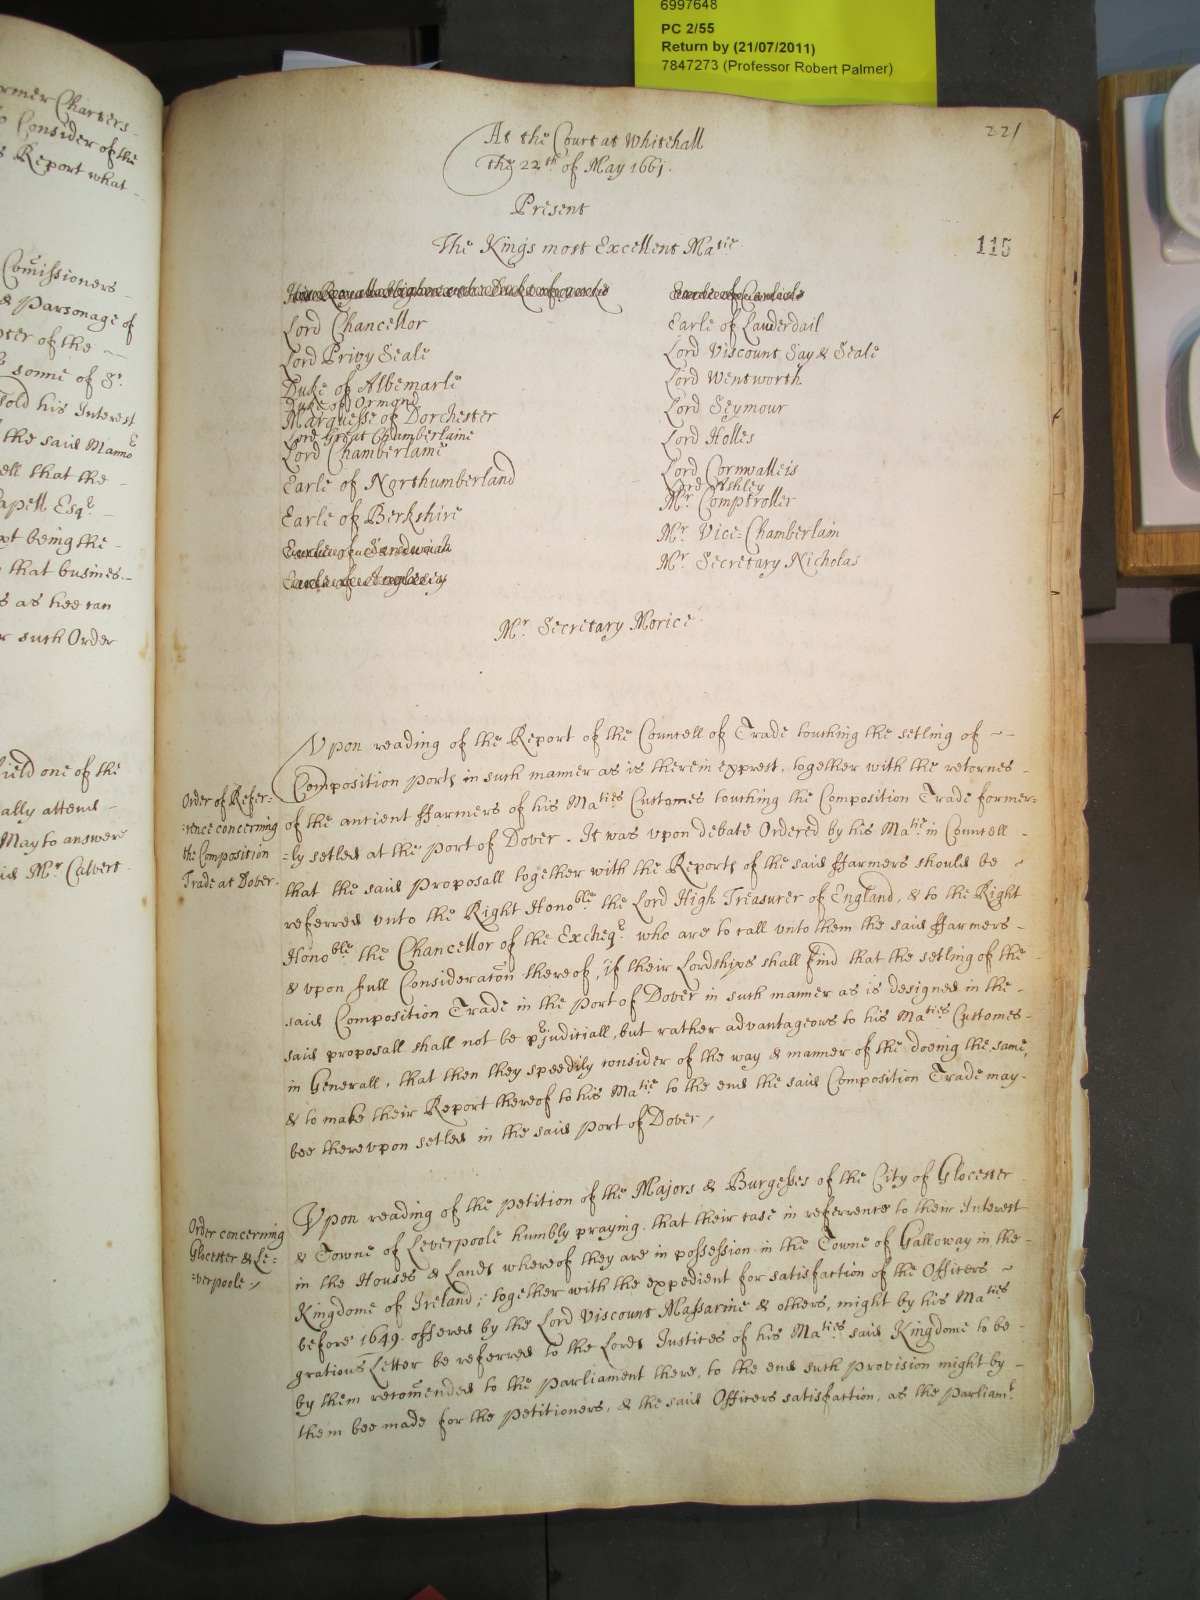 6997648
PC 2/55
Return by (21/07/2011)
7847273 (Professor Robert Palmer)
rmer Charters
o Consider of the
s Report what
Com̃issioners
& Parsonage of
of the
sonne of Sr.
sold his Interest
the said Manno
ell that the
apell Esqr.
pt being the
that busines.
s as hee can
r such Order
ield one of the
ally attend
May to answere
id Mr Calvert
221
115
At the Court at Whitehall
The 22th of May 1661.
Present
The Kings most Excellent Matie
His Royall Highness the Duke of Yorke
Lord Chancellor
Lord Privy Seale
Duke of Albemarle
Duke of Ormond
Marquesse of Dorchester
Lord Great Chamberlaine
Lord Chamberlaine
Earle of Northumberland
Earle of Berkshire
Earle of Sandwich
Earle of Anglesey
Earle of Carlisle
Earle of Lauderdail
Lord Viscount Say & Seale
Lord Wentworth
Lord Seymour
Lord Holles
Lord Cornwalleis
Lord Ashley
Mr. Comptroller
Mr. Vice=Chamberlain
Mr. Secretary Nicholas
Mr. Secretary Morice.
Order of Refer=
=rence concerning
the Composition
Trade at Dover.
Vpon reading of the Report of the Councell of Trade touching the setling of
Composition Ports, in such manner as is therein exprest, together with the retornes
of the antient ffarmers of his Maties Customes touching the Composition Trade former=
=ly setled at the Port of Dover. It was vpon debate Ordered by his Matie in Councell
that the said Proposall together with the Reports of the said ffarmers should be
referred vnto the Right Honoble the Lord High Treasurer of England, & to the Right
Honoble the Chancellor of the Excheqr. who are to call vnto them the said ffarmers
& vpon full Consideraton thereof, if their Lordships shall find that the setling of the
said Composition Trade in the Port of Dover in such manner as is designed in the
said proposall shall not be pjudiciall, but rather advantageous to his Maties Customes
in Generall, that then they speedily consider of the way & manner of the doeing the same,
& to make their Report thereof to his Matie to the end the said Composition Trade may
bee therevpon setled in the said Port of Dover /
Order concerning
Glocester & Le=
=verpoole /
Vpon reading of the Petition of the Majors & Burgesses of the City of Glocester
& Towne of Leverpoole humbly praying, that their case in referrence to their Interest
in the Houses & Lands whereof they are in possession in the Towne of Galloway in the
Kingdome of Ireland; together with the expedient for satisfaction of the Officers
before 1649. offered by the Lord Viscount Massarine & others, might by his Maties
gratious Letter be referred to the Lords Justices of his Maties said Kingdome to be
by them recom̃ended to the Parliament there, to the end such provision might by
them bee made for the Petitioners, & the said Officers satisfaction, as the Parliamt.